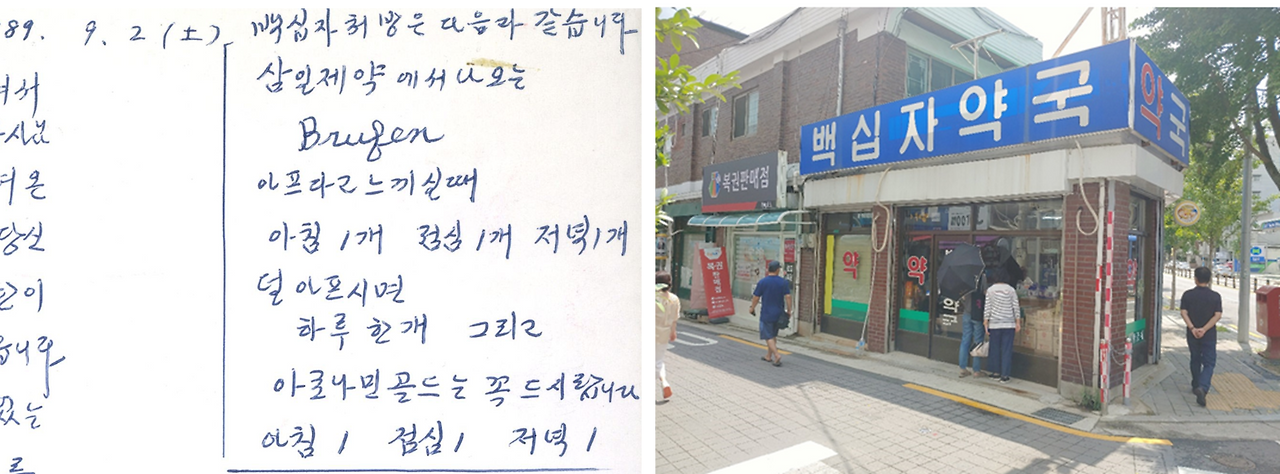 89. 9. 2 (土)
백십자 처방은 다음과 같습니다
삼일제약에서 나오는
Brufen
아프다고 느끼실때
아침 1개 점심 1개 저녁 1개
덜 아프시면
하루 한개 그리고
아로나민골드는 꼭 드시랍니다
아침 1 점심 1 저녁 1
백십자약국
약국
복권판매점
복권판매점
약
약
약국